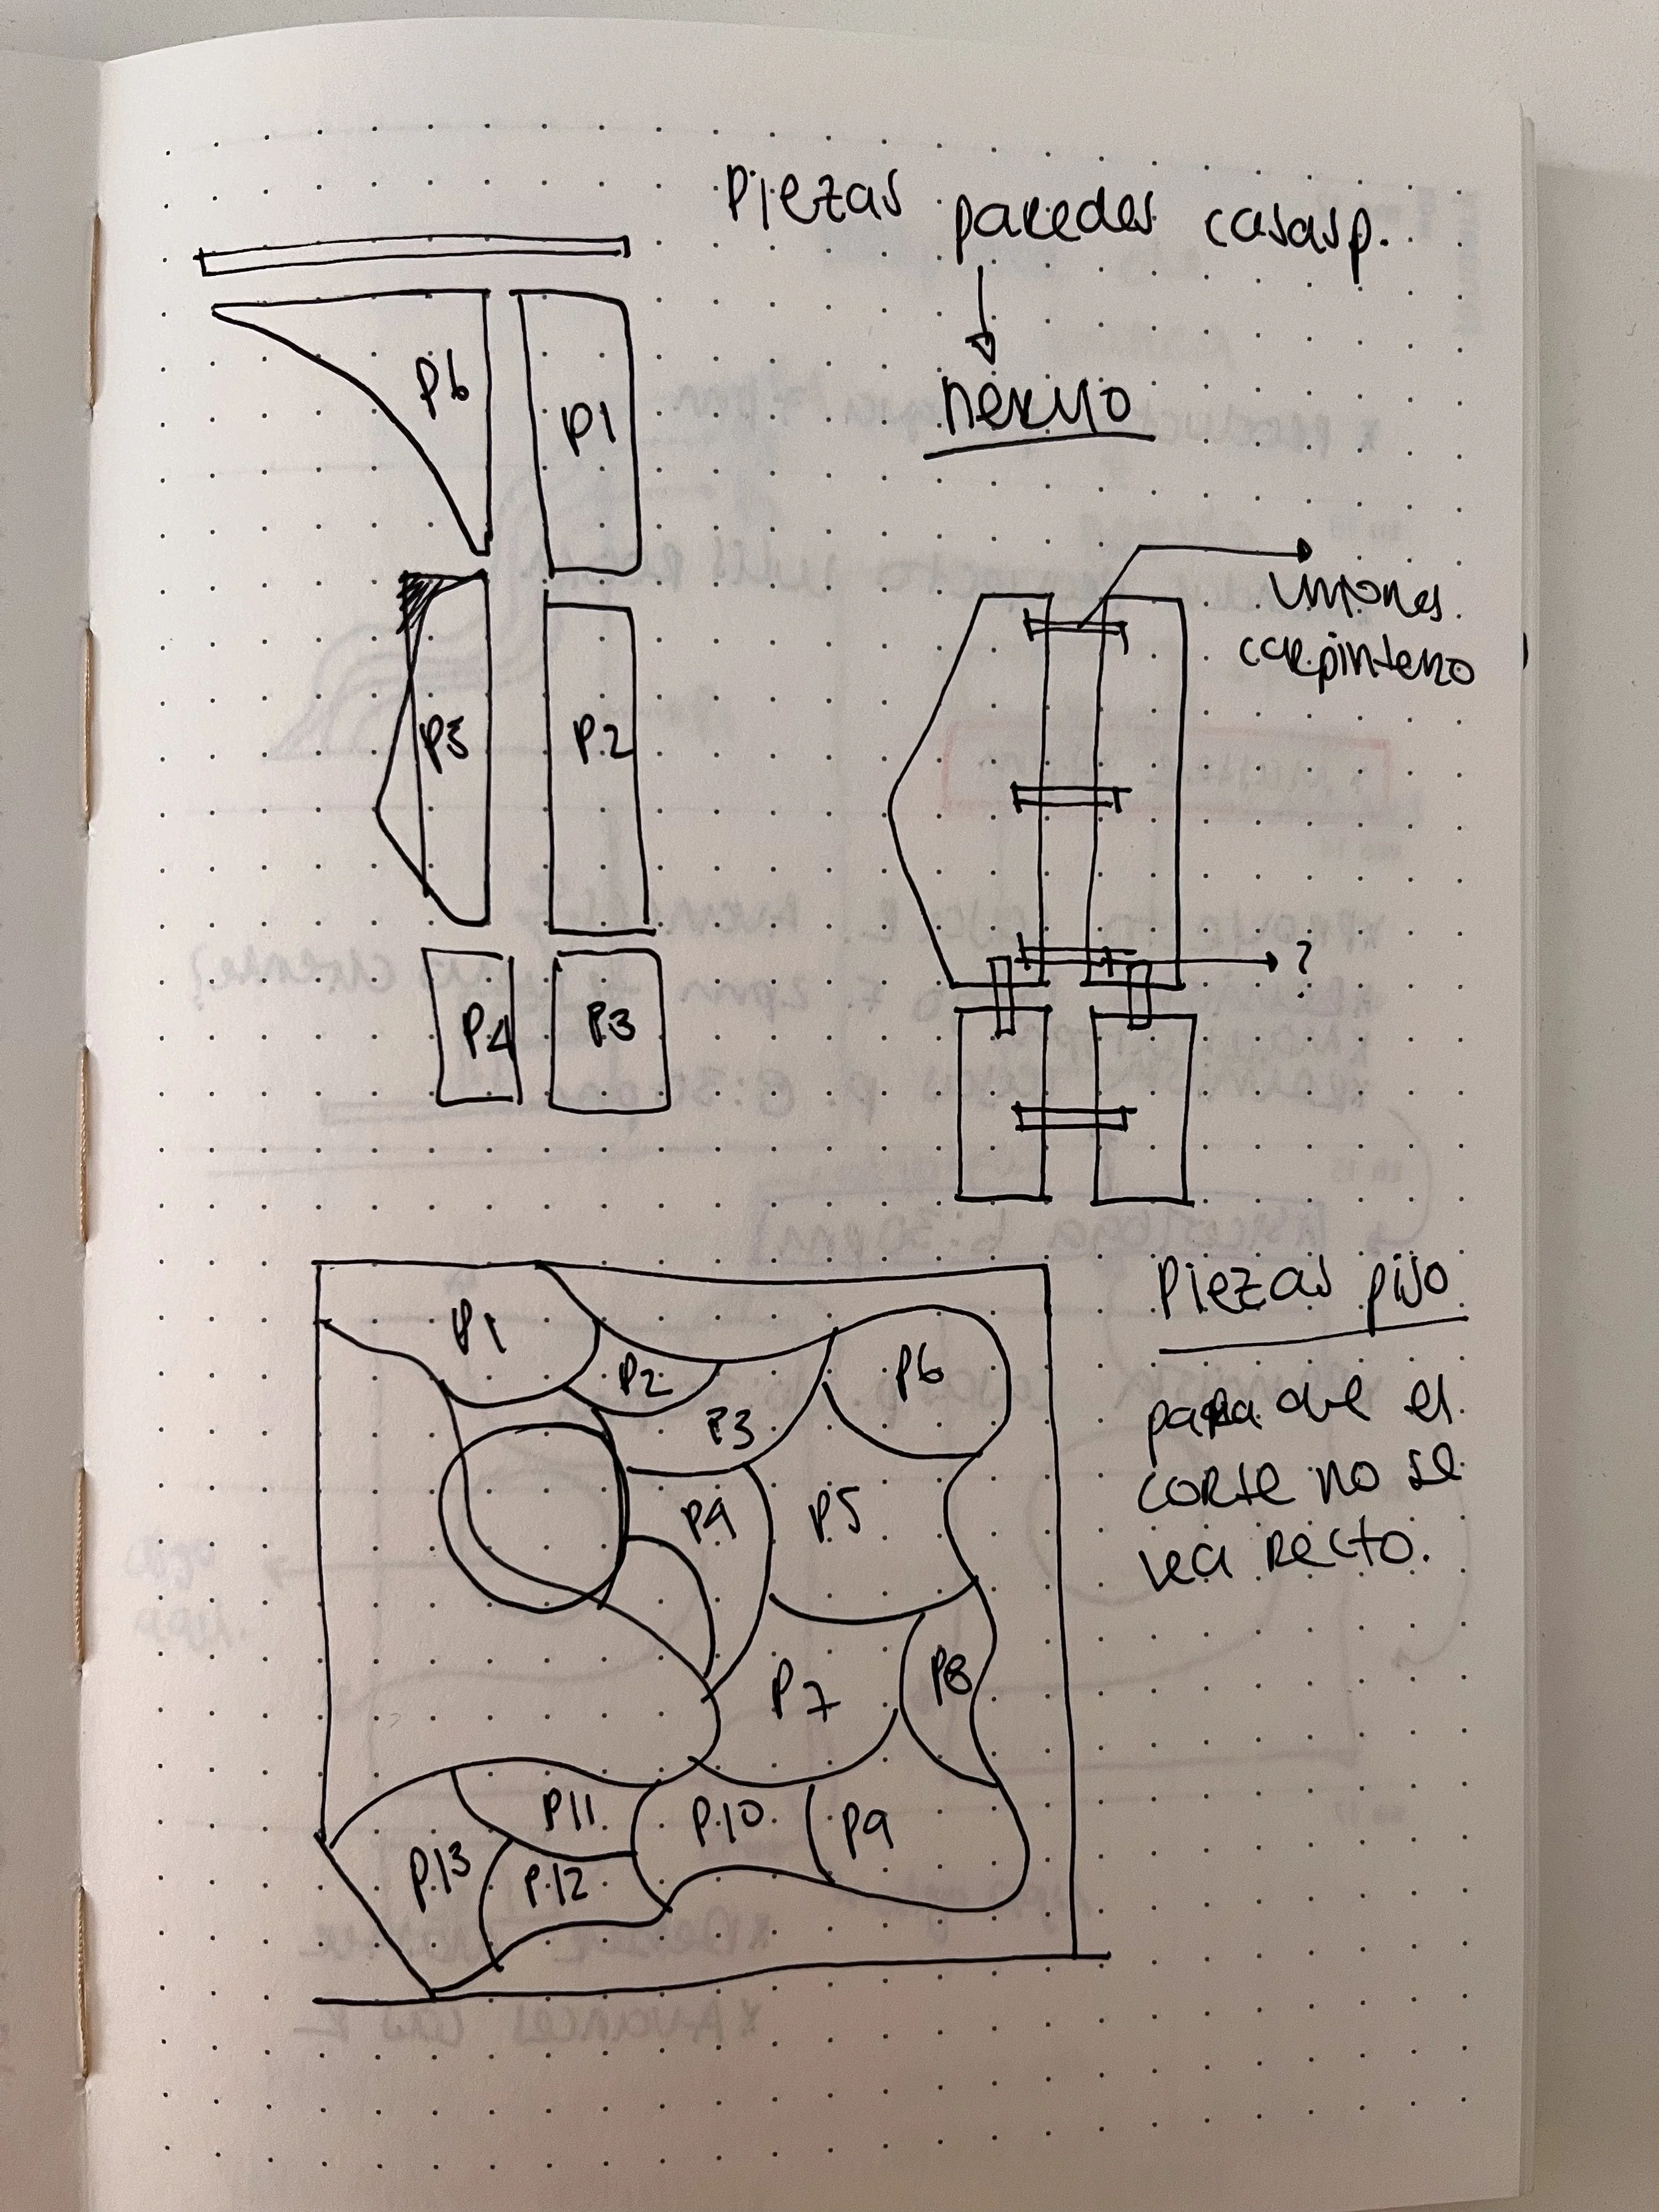 Piezas paredes casasp.
nervio
P6
P1
uniones
carpintero
P5
P.2
?
P4
P.3
Piezas piso
para que el
corte no se
vea recto.
P1
P2
P6
P3
P4
P5
P7
P8
P11
P.10
P9
P.13
P.12